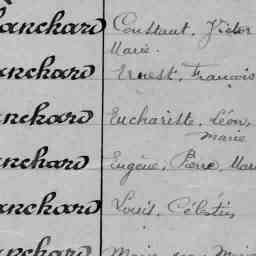 lanchard Constant, Victor
Marie.
anchard Ernest, François
anchard Euchariste, Léon,
Marie
anchard Eugène, Pierre, Mari
anchard Louis, Célestin
anchard